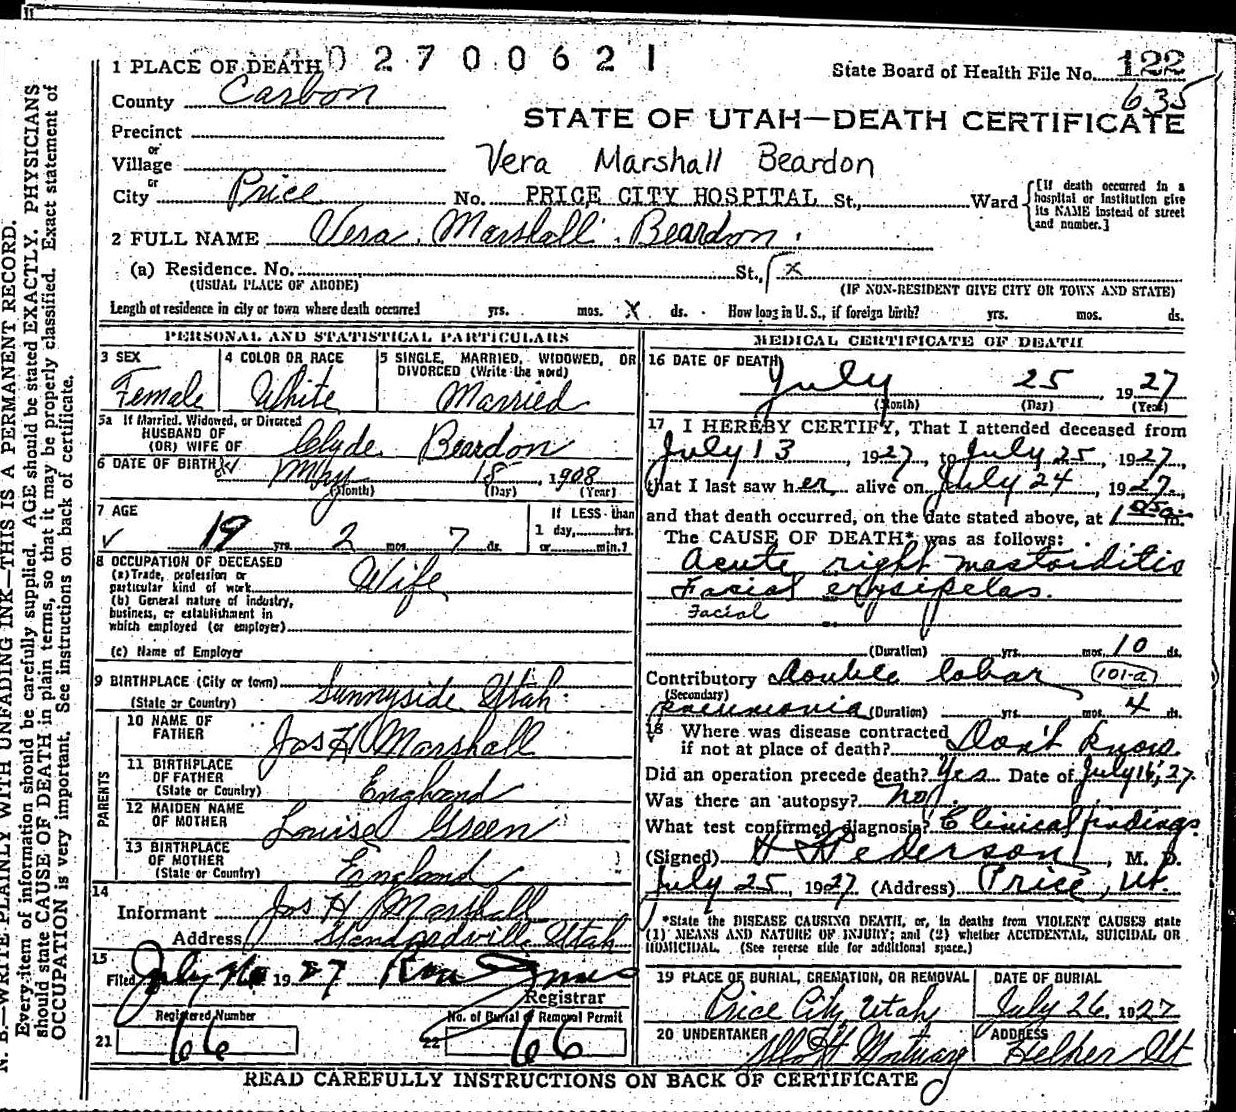 N. B.—WRITE PLAINLY WITH UNFADING INK—THIS IS A PERMANENT RECORD.
Every item of information should be carefully supplied. AGE should be stated EXACTLY. PHYSICIANS
should state CAUSE OF DEATH in plain terms, so that it may be properly classified. Exact statement of
OCCUPATION is very important. See instructions on back of certificate.
0 2 7 0 0 6 2 1
1 PLACE OF DEATH
State Board of Health File No. 122
635
County Carbon
STATE OF UTAH—DEATH CERTIFICATE
Precinct
or
Village
Vera Marshall Beardon
or
City Price No. PRICE CITY HOSPITAL St., Ward
[If death occurred in a hospital or institution give its NAME instead of street and number.]
2 FULL NAME Vera Marshall Beardon
(a) Residence. No. St., x
(USUAL PLACE OF ABODE) (IF NON-RESIDENT GIVE CITY OR TOWN AND STATE)
Length of residence in city or town where death occurred yrs. mos. X ds. How long in U. S., if foreign birth? yrs. mos. ds.
PERSONAL AND STATISTICAL PARTICULARS
3 SEX
Female
4 COLOR OR RACE
White
5 SINGLE, MARRIED, WIDOWED, OR
DIVORCED (Write the word)
Married
5a If Married, Widowed, or Divorced
HUSBAND OF
(OR) WIFE OF Clyde Beardon
6 DATE OF BIRTH May 18, 1908
(Month) (Day) (Year)
7 AGE
19 yrs. 2 mos. 7 ds.
If LESS than
1 day, hrs.
or min.?
8 OCCUPATION OF DECEASED
(a) Trade, profession or
particular kind of work Wife
(b) General nature of industry,
business, or establishment in
which employed (or employer)
(c) Name of Employer
9 BIRTHPLACE (City or town) Sunnyside Utah
(State or Country)
PARENTS
10 NAME OF
FATHER Jos H Marshall
11 BIRTHPLACE
OF FATHER
(State or Country) England
12 MAIDEN NAME
OF MOTHER Louise Green
13 BIRTHPLACE
OF MOTHER
(State or Country) England
14
Informant Jos H Marshall
Address Standardville Utah
15
Filed July 1927
Registrar
Registered Number
21 66
No. of Burial or Removal Permit
22 66
MEDICAL CERTIFICATE OF DEATH
16 DATE OF DEATH
July 25, 1927
(Month) (Day) (Year)
17 I HEREBY CERTIFY, That I attended deceased from
July 13, 1927, to July 25, 1927,
that I last saw her alive on July 24, 1927,
and that death occurred, on the date stated above, at 1 05a m.
The CAUSE OF DEATH* was as follows:
Acute right mastoiditis
Facial erysipelas.
Facial
(Duration) yrs. mos. 10 ds.
Contributory double lobar 101-a
(Secondary)
pneumonia (Duration) yrs. mos. 4 ds.
18 Where was disease contracted
if not at place of death? Don't know
Did an operation precede death? Yes Date of July 16, 27
Was there an autopsy? no
What test confirmed diagnosis? Clinical findings
(Signed) H Pederson, M. D.
July 25, 1927 (Address) Price, Ut.
*State the DISEASE CAUSING DEATH, or, in deaths from VIOLENT CAUSES state
(1) MEANS AND NATURE OF INJURY; and (2) whether ACCIDENTAL, SUICIDAL OR
HOMICIDAL. (See reverse side for additional space.)
19 PLACE OF BURIAL, CREMATION, OR REMOVAL
Price City, Utah
DATE OF BURIAL
July 26, 1927
20 UNDERTAKER
Mortuary
ADDRESS
Helper Ut
READ CAREFULLY INSTRUCTIONS ON BACK OF CERTIFICATE